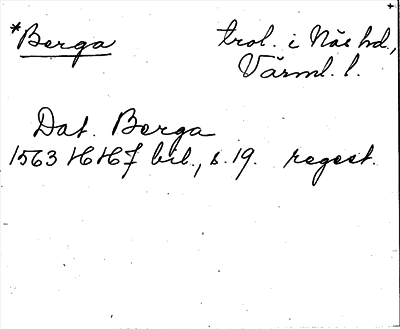 *Berga
trol. i Näs hd.,
Värml. l.
Dat. Berga
1563 HH7 bil., s. 19. regest.